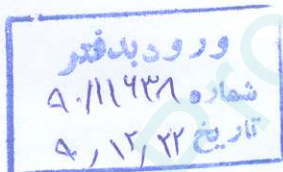 ورود بدفتر
شماره ۹۰/۱۱۶۳۸
تاریخ ۹۰/۱۲/۲۲